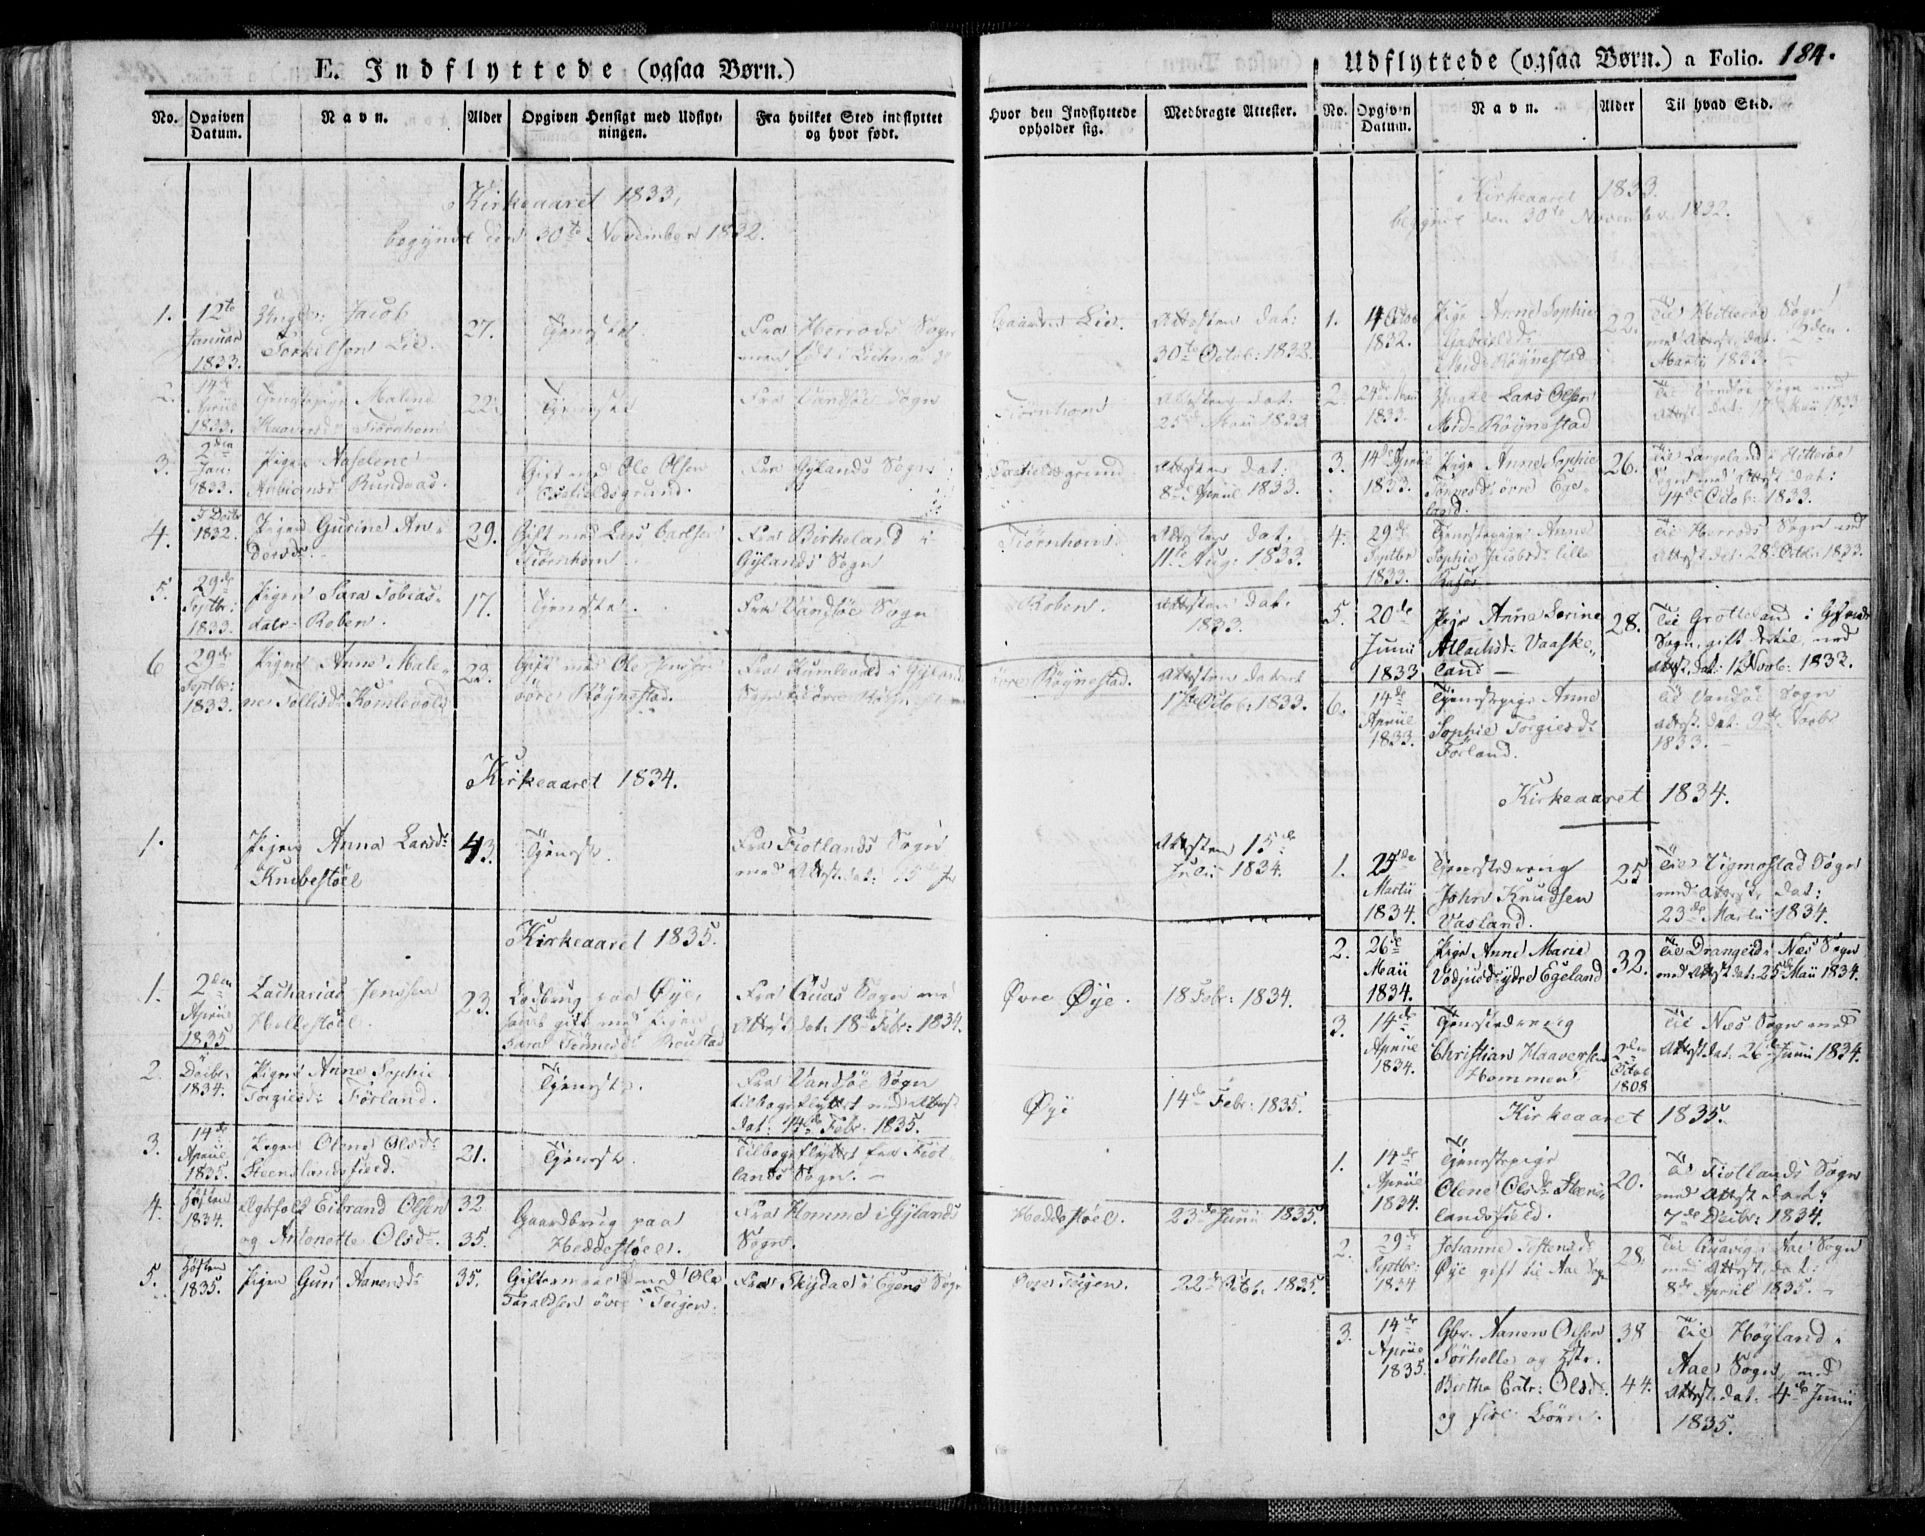 E. Indflyttede (ogsaa Børn.)
No.
Opgiven Datum.
Navn.
Alder
Opgiven Hensigt med Udflyt-
ningen.
Fra hvilket Sted indflyttet
og hvor født.
Hvor den Indflyttede
opholder sig.
Medbragte Attester.
Kirkeaaret 1833,
begyndt den 30te November 1832.
1.
12te
Januar
1833.
Jacob
Torkelsen Lie.
27.
Tjeneste
Fra Herrods Sogn
Gaarden Lie.
Attesten dat:
30te Octob: 1832.
2.
14de
Apriil
1833.
Tjenestepige Malene
Tjørnhom
22.
Tjeneste
Fra Vandsøe Sogn
Tiørnhom
Attesten dat:
25de Maii 1833
3.
2den
Jan:
1833.
Pigen Aaselene
Gift med Ole Olsen
Fra Gylands Sogn
Attesten dat:
8de Apriil 1833.
4.
1832.
Pigen Gurine An-
dersd:
29.
Gift med Lars
Tiørnhom
Fra Birkeland i
Gÿlands Sogn
Tiørnhom.
Attesten dat.
11te Aug: 1833.
5.
29de
Septbr:
1833.
Pigen Sara Tobias-
datr Roben.
17.
Tjeneste
Fra Vandsøe Sogn
Roben.
Attesten dat.
1833.
6
29de
Septbr:
1833.
Pigen Anne Male-
ne Tollisd: Komlevold
23.
Gift med Ole
øvre Røÿnestad.
Fra Kumlevold i Gÿland
øvre Røÿnestad.
Attesten dateret
Octob: 1833.
Kirkeaaret 1834.
1.
Pigen Anna Larsdr
Knibestøel
43.
Tjeneste.
Fra Fiotlands Sogn
med Attest dat: 15de
Attesten 15de
Julii 1834.
Kirkeaaret 1835.
1.
2den
Apriil
1835
Zacharias Jensen
Hellestøel.
23.
paa Øÿe,
gift med Pigen
Fra Quas Sogn med
Attest dat: 18de Febr: 1834.
Øvre Øÿe.
18 Febr: 1834.
2.
Dcibr.
1834.
Pigen Anne Sophie
Torgiesdr Førland.
Tjeneste.
Fra Vandsøe Sogn
tilbageflyttet med Attest
dat: 14de Febr: 1835.
Øÿe
14de Febr: 1835.
3.
14de
Apriil
1835.
Pigen Olene Olsdr
Steenslandsfield.
21.
Tjeneste.
Tilbageflyttet fra Fiot-
lands Sogn. —
4.
Høsten
1834.
Eibrand Olsen
og Antonette Olsdr.
32
35.
Gaardbrug paa
Heddestøel.
Fra Homme i Gÿlands
Sogn.
Heddestøel.
23de Junii 1835.
5.
Høsten
1835.
Pigen Guri Aanensdr
35.
Giftermaal med Ole
Taraldsen øvre Teigen.
Fra i Egens Sogn
Øvre Teigen.
22de Octbr. 1835.
Udflyttede (ogsaa Børn.) a Folio. 184.
No.
Opgiven
Datum.
Navn.
Alder
Til hvad Sted.
Kirkeaaret 1833.
begyndt den 30te November 1832.
1.
4 Octob
1832.
Pige Anne Sophie
Gabrielsdr
Med-Røÿnestad
22.
Til Hitterøe Sogn
med Attest dat. 2den
Martii 1833.
2.
24de Maii
1833.
Lars Olsen
Med-Røÿnestad
Til Vandsøe Sogn med
Attest dat: 17 Maii 1833
3.
14de Apriil
1833.
Pige Anne Sophie
Tønnesdr øvre Ege-
land.
26.
Til Langeland i Hitterøe
Sogn med Attest dat:
14de Octob: 1833.
4.
29de
Septbr
1833.
Tjenestepige Anne
Sophie Jacobsdr lille
Til Herrods Sogn med
Attest dat: 28de Octb: 1833.
5.
20de
Junii
1833
Pige Anne Serine
Atlachsdr Vaaske-
land —
28.
Til Grotteland i Gÿlands
Sogn, gift dertil med
Attest dat: 12 Novb: 1832.
6.
14de
Apriil
1833.
Tjenestepige Anne
Sophie Torgiesdr
Førland.
Til Vandsøe Sogn
Attest. dat: 9de Novbr
1833. —
Kirkeaaret 1834.
1.
24de
Martii
1834.
Tjenestedreng
John Knudsen
Vasland.
25
Til Vigmostad Sogn
med Attest dat:
23de Martii 1834.
2.
26de
Maii
1834.
Pige Anne Marie
ÿdre Egeland
32.
Til Drangeid i Næs Sogn
med Attest dat: 25de Maii 1834.
3.
14de
Apriil
1834.
Tjenestedreng
Christian Haaversen
Hommen
2den
Octob
1808
Til Næs Sogn med
Attest dat. 26de Junii 1834.
Kirkeaaret 1835.
1.
14de
Apriil
1834.
Tjenestepige
Olene Olsdr Steens-
landsfield.
20.
Til Fiotlands Sogn
med Attest dat:
7de Dcibr: 1834.
2.
29de
Septbr:
1834
Johanne
Øÿe gift til Aae Sogn
28.
Til i Aae Sogn
med Attest, dat:
8de April 1835. —
3.
14de
Apriil
1835.
Gbr. Aanen Olsen
Sørhelle og Hstr.
Birthe Catr: Olsdr.
og fire Børn.
38
44.
Til Høÿland i
Aae Sogn, med
Attest. dat. 4de Junii
1835.